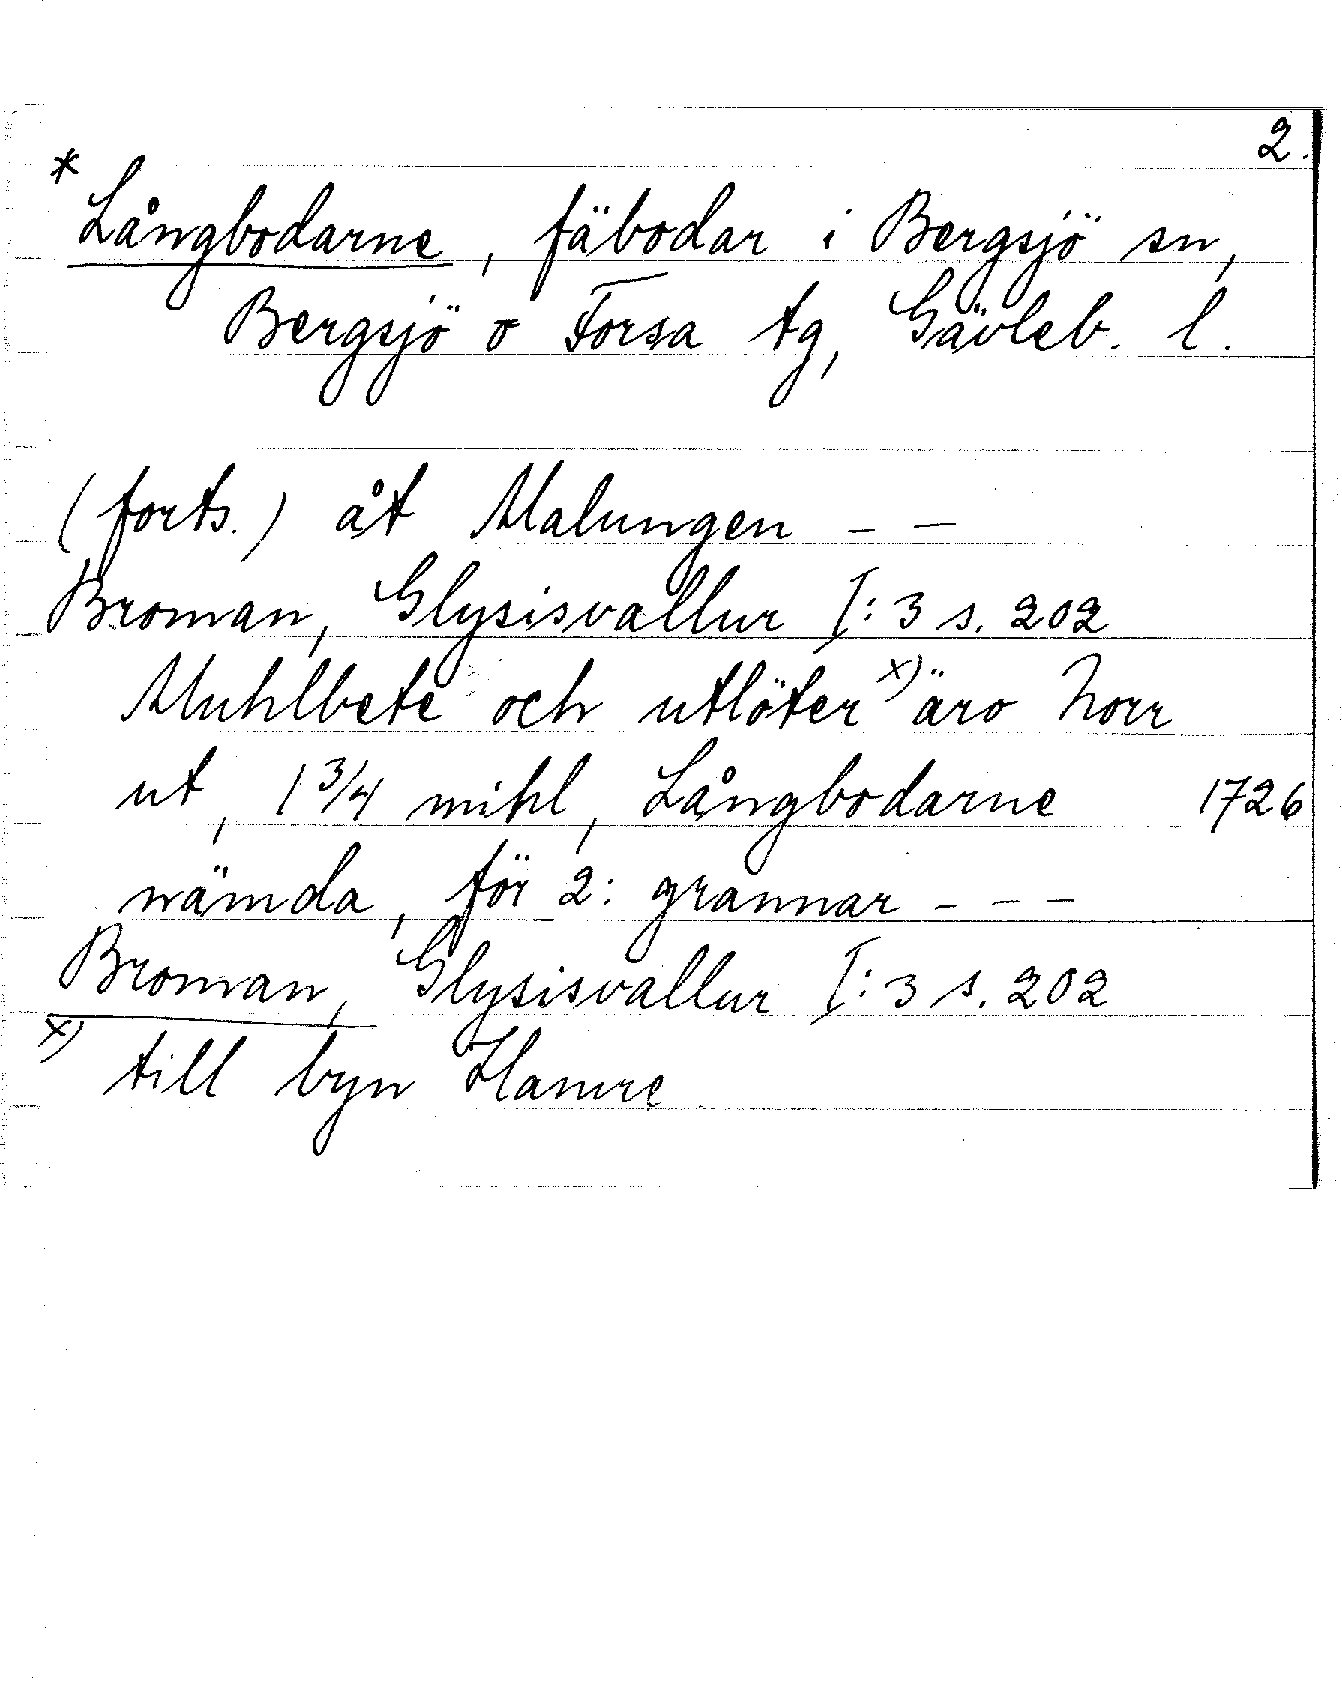 2.
* Långbodarne, fäbodar i Bergsjö sn,
Bergsjö o Forsa tg, Gävleb. l.
(forts.) åt Malungen - -
Broman, Glysisvallur I:3 s. 202
Muhlbete och utlöter x) äro Norr
ut, 1 3/4 mihl, Långbodarne 1726
nämda, för 2: grannar - - -
Broman, Glysisvallur I:3 s. 202
x) till byn Hamre